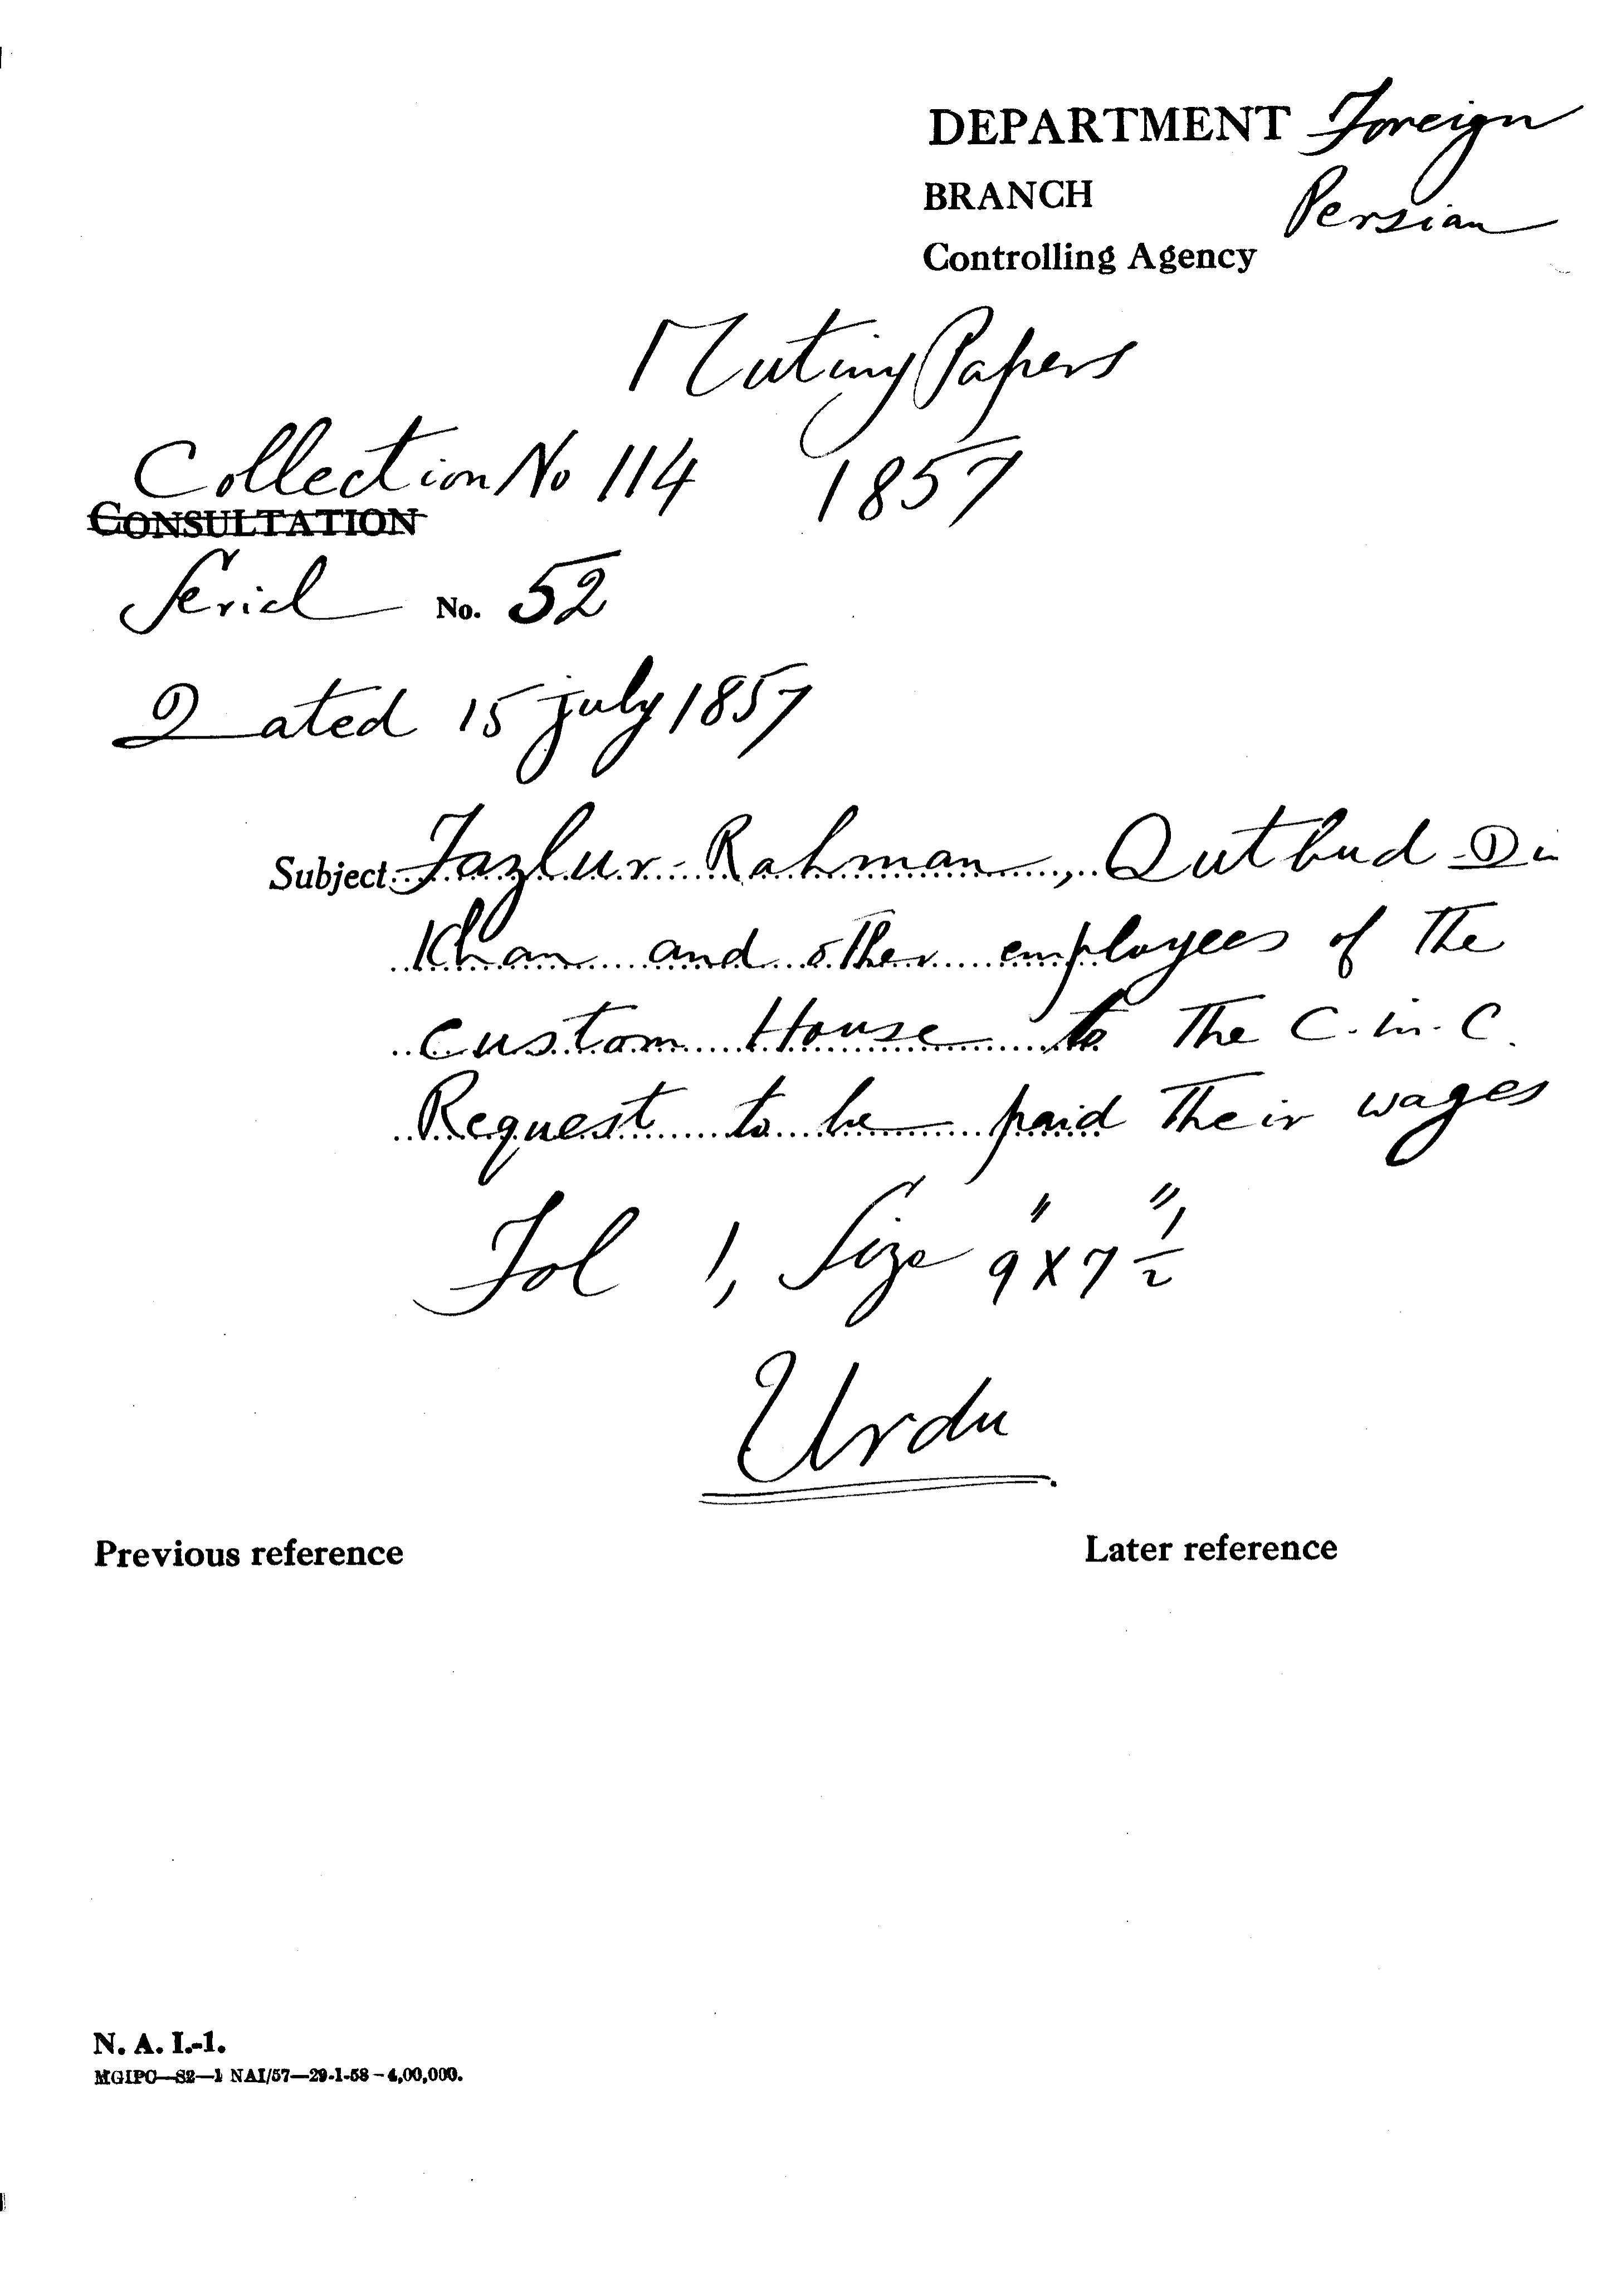 DEPARTMENT Foreign
BRANCH Persian
Controlling Agency
Mutiny Papers
Collection No 114 1857
CONSULTATION
Serial No. 52
Dated 15 july 1857
Subject Fazlur-Rahman, Qutbud-Din
Khan and other employees of the
custom House to the C-in-C.
Request to be paid their wages
Fol 1, Size 9" x 7 1/2"
Urdu
Previous reference Later reference
N. A. I.-1.
MGIPC—S2—1 NAI/57—29-1-58—4,00,000.